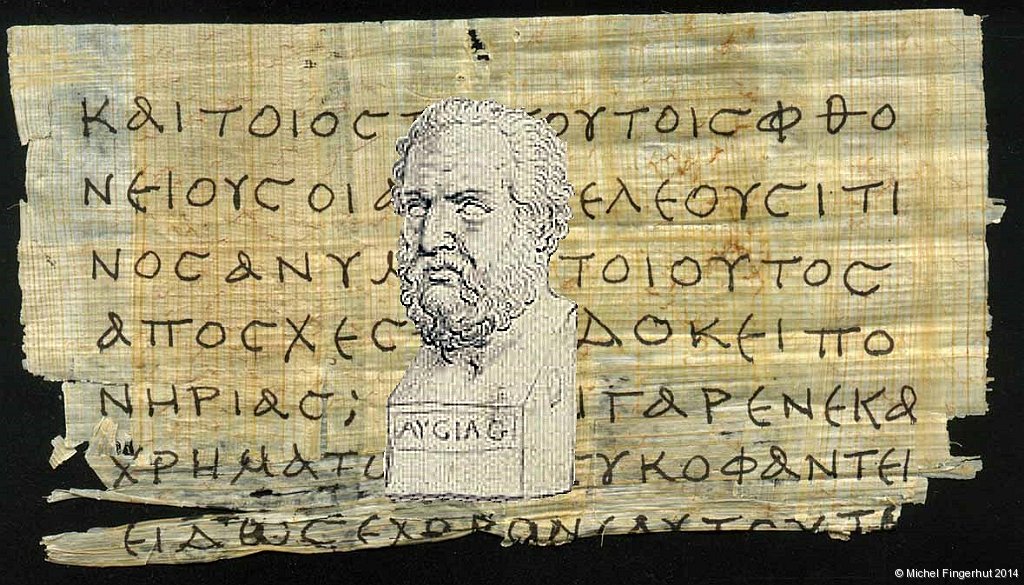 ΚΑΙΤΟΙΟϹΤ ΟΥΤΟΙϹΦΘΟ
ΝΕΙΟΥϹΟΙΑ ΕΛΕΟΥϹΙΤΙ
ΝΟϹΑΝΥΜ ΤΟΙΟΥΤΟϹ
ΑΠΟϹΧΕϹ ΔΟΚΕΙΠΟ
ΝΗΡΙΑϹ; ΙΓΑΡΕΝΕΚΑ
ΛΥϹΙΑϹ
ΧΡΗΜΑΤΩ ϹΥΚΟΦΑΝΤΕΙ
© Michel Fingerhut 2014